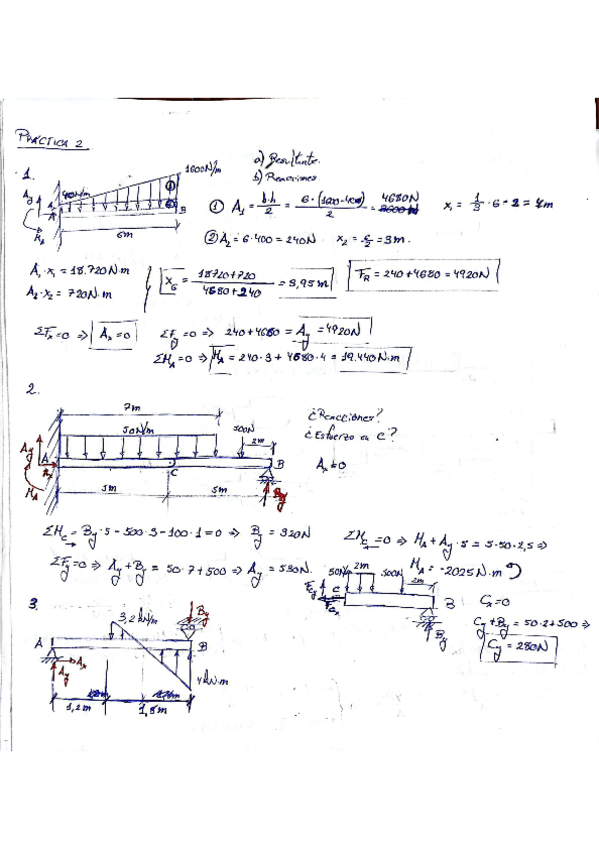 PRÁCTICA 2
1.
a) Resultante.
b) Reacciones
1600N/m
40N/m
Ay
A
B
MA
6m
① A₁ = b·h/2 = 6·(1600-40)/2 = 4680N
x₁ = 1/3 · 6 = 2 = 4m
② A₂ = 6·400 = 240N x₂ = 6/2 = 3m.
A₁·x₁ = 18.720N·m
A₂·x₂ = 720N·m
XG = 18720+720 / 4680+240 = 3,95m
FR = 240+4680 = 4920N
ΣFx=0 ⇒ Ax=0 ΣFy=0 ⇒ 240+4680 = Ay = 4920N
ΣMA=0 ⇒ MA = 240·3 + 4680·4 = 19.440N·m
2.
7m
50N/m
500N
2m
Ay
A
Ax
MA
C
B
By
5m
5m
¿Reacciones?
¿Esfuerzo en C?
Ax=0
ΣMC = By·5 - 500·3 - 100·1 = 0 ⇒ By = 320N
ΣMC=0 ⇒ MA + Ay·5 = 5·50·2,5 ⇒
ΣFy=0 ⇒ Ay + By = 50·7+500 ⇒ Ay = 530N.
MA = -2025N·m
50N/m
2m
500N
2m
FCy
C
FCx
B
By
Cx=0
Cy+By = 50·2+500 ⇒
Cy = 280N
3.
3,2kN/m
By
A
B
Ax
Ay
4kN·m
1,2m
1,5m